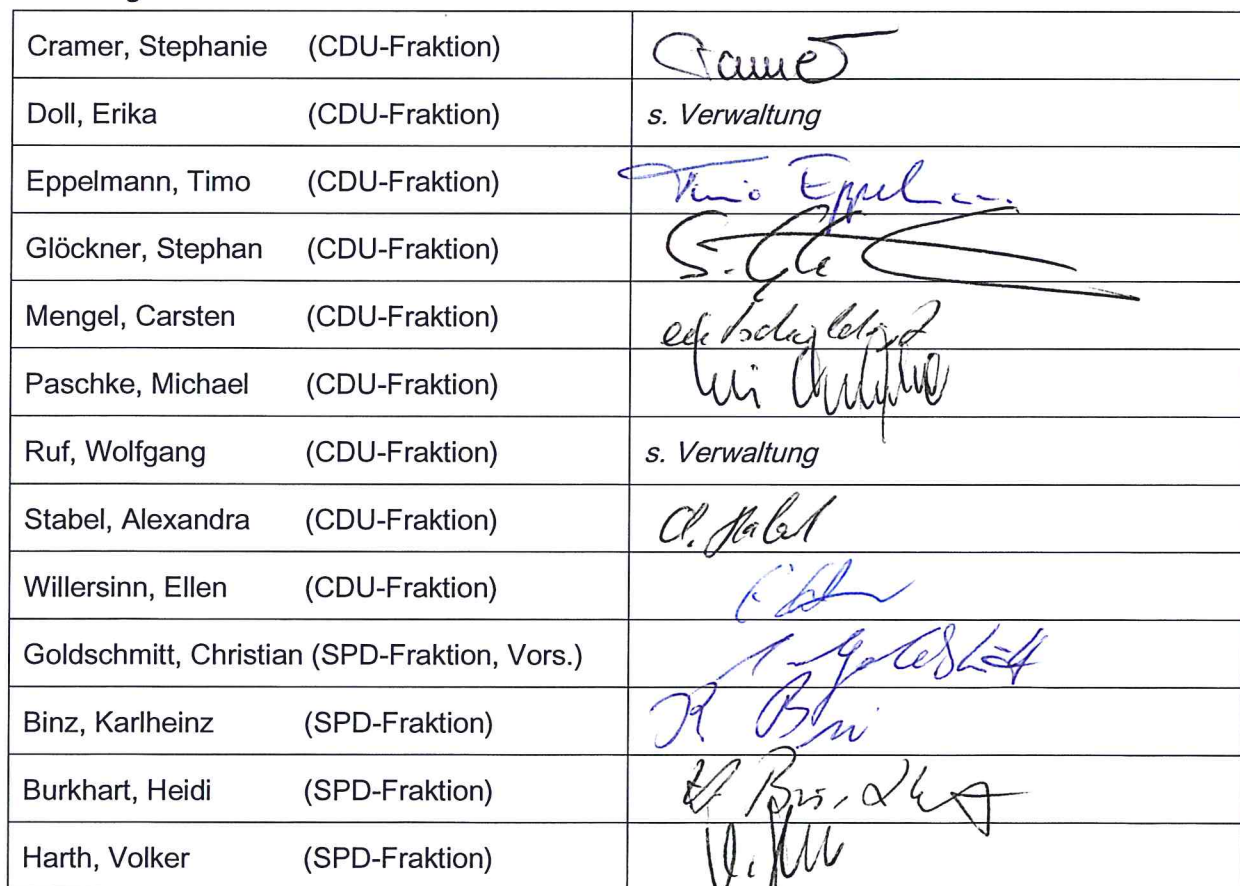 Cramer, Stephanie (CDU-Fraktion) Cramer
Doll, Erika (CDU-Fraktion) s. Verwaltung
Eppelmann, Timo (CDU-Fraktion) Timo Eppelmann
Glöckner, Stephan (CDU-Fraktion)
Mengel, Carsten (CDU-Fraktion) entschuldigt
Paschke, Michael (CDU-Fraktion)
Ruf, Wolfgang (CDU-Fraktion) s. Verwaltung
Stabel, Alexandra (CDU-Fraktion) A. Stabel
Willersinn, Ellen (CDU-Fraktion)
Goldschmitt, Christian (SPD-Fraktion, Vors.)
Binz, Karlheinz (SPD-Fraktion)
Burkhart, Heidi (SPD-Fraktion)
Harth, Volker (SPD-Fraktion)